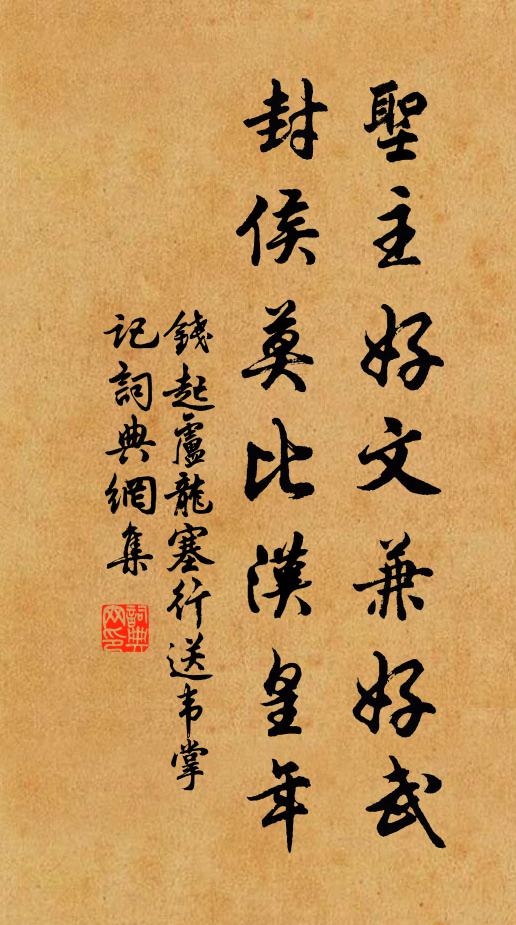 聖主好文兼好武
封侯莫比漢皇年
錢起盧龍塞行送韦掌
记詞典網集
詞典
网印